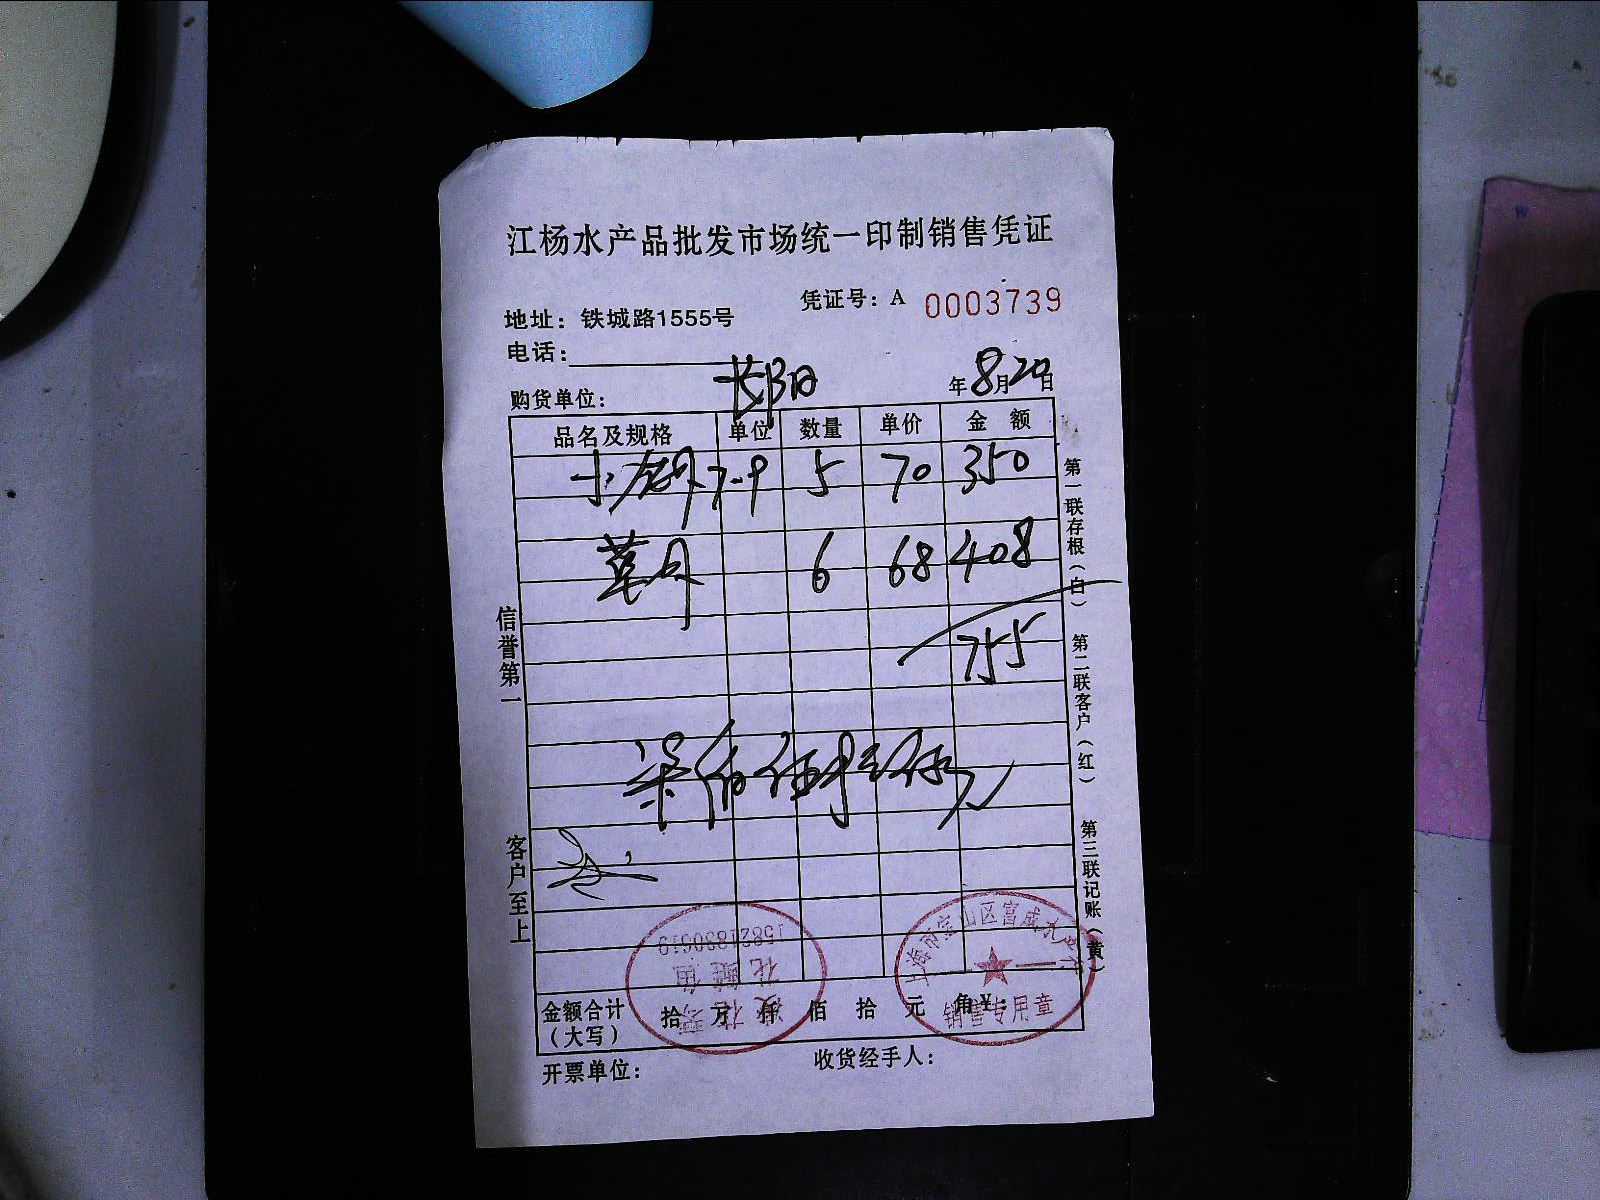 江杨水产品批发市场统一印制销售凭证
凭证号：A 0003739
地址：铁城路1555号
电话：
购货单位： 长阳 年8月20日
品名及规格 单位 数量 单价 金额
小 7-9 5 70 350
草 6 68 408
755
柒佰伍拾伍
信誉第一
客户至上
第一联存根（白）
第二联客户（红）
第三联记账（黄）
15821890619
上海市宝山区富成水产行
销售专用章
金额合计（大写） 拾 万 仟 佰 拾 元 角 ¥：
开票单位： 收货经手人：